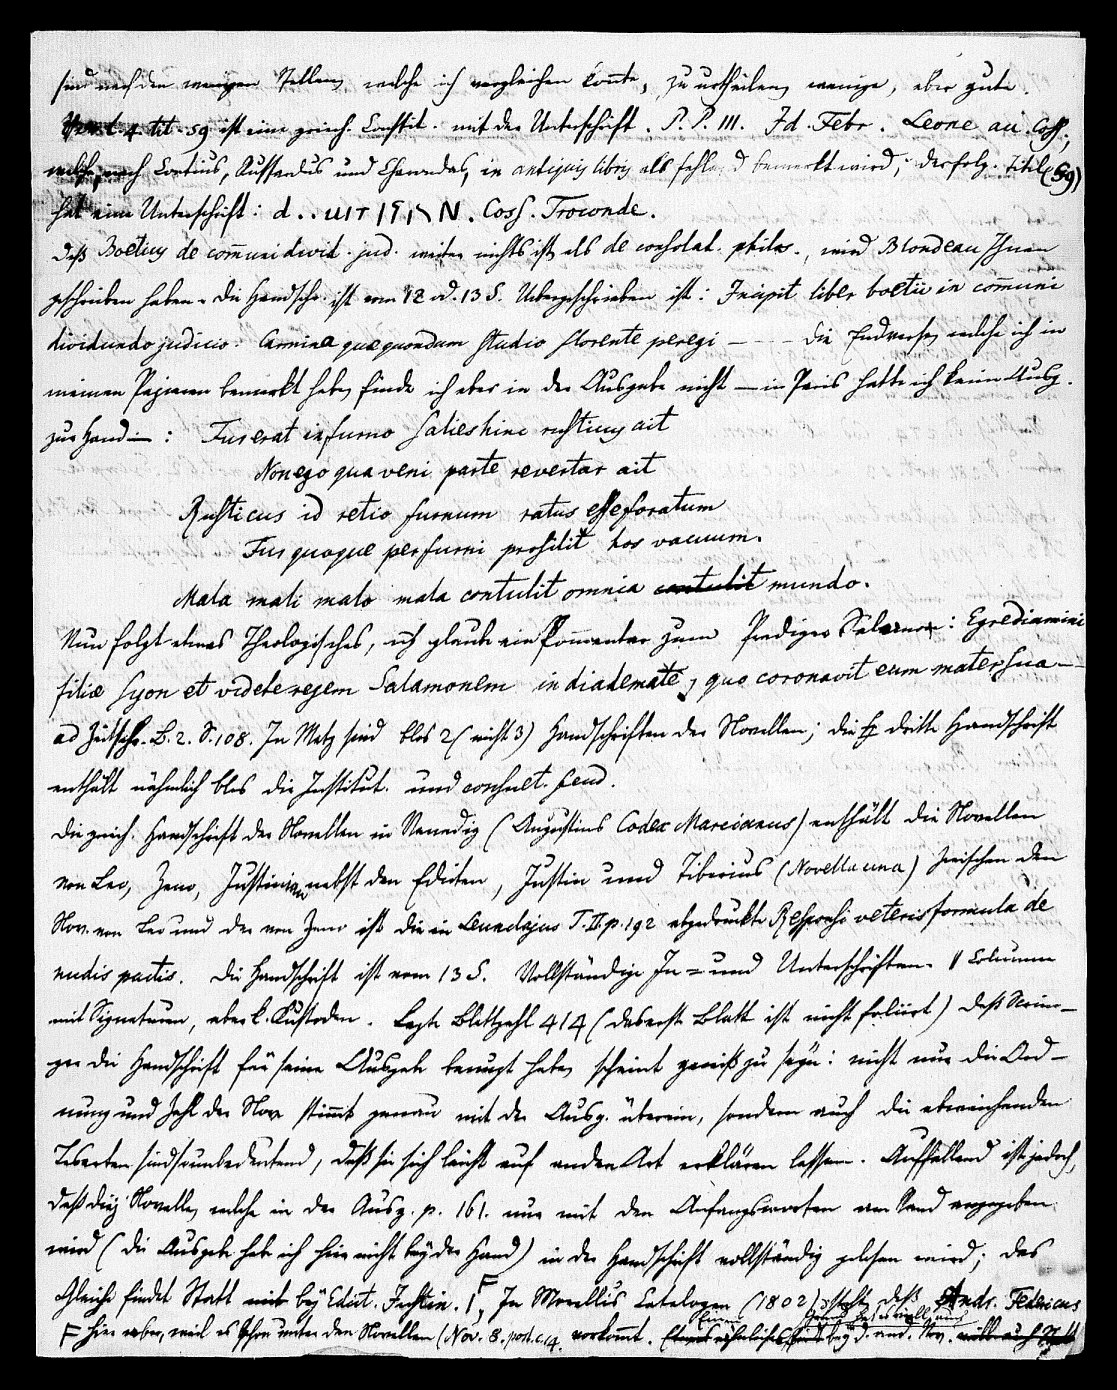 sind nach den wenigen Stellen, welche ich vergleichen konnte, zu urtheilen, wenige, aber gute.
t. 4. tit. 59 ist eine griech. Constit. mit der Unterschrift. P. P. III. Id. Febr. Leone au. Coss.,
welche, nach Contius, Russardus und Charondas, in antiquis libris als fehlend bemerkt wird; der folg. Titel (59)
hat eine Unterschrift: d. . N. Coss. Troconde.
Daß Boetius de com̄uni divid. jud. weiter nichts ist als de consolat. philos., wird Blondeau Ihnen
geschrieben haben. Die Handschr. ist vom 12 od. 13 S. Uebergeschrieben ist: Incipit liber boetii in com̄uni
dividundo judicio. Carmina quae quondam studio florente peregi — - - - Die Endverse, welche ich in
meinen Papieren bemerkt habe, finde ich aber in der Ausgabe nicht — in Paris hatte ich keine Ausg.
zur Hand — : Fur erat in furno salies hinc rusticus ait
Non ego qua veni parte revertar ait
Rusticus id retio furnum ratus esse foratum
Fur quoque per furni prosilit hos vacuum.
Mala mali malo mala contulit omnia contulit mundo.
Nun folgt etwas Theologisches, ich glaube ein Kom̄entar zum Prediger Salomon: Egrediamini
filiae Syon et videte regem Salamonem in diademate, quo coronavit eum mater sua —
ad Zeitschr. B. 2. S. 108. In Metz sind blos 2 (nicht 3) Handschriften der Novellen; die dritte Handschrift
enthält nähmlich blos die Institut. und consuet. feud.
Die griech. Handschrift der Novellen in Venedig (Augustins Codex Marcianus) enthält die Novellen
von Leo, Zeno, Justinian nebst den Edicten, Justin und Tiberius (Novella una) zwischen den
Nov. von Leo und der von Zeno ist die in Leunclajus T. II. p. 192 abgedruckte Responsi veteris formula de
nudis pactis. Die Handschrift ist vom 13 S. Vollständige In- und Unterschriften. Columne
mit Signaturen, aber k. Kustoden. Letzte Blattzahl 414 (das erste Blatt ist nicht foliirt) Daß Scrim-
ger die Handschrift für seine Ausgabe benuzt habe, scheint gewiß zu seyn: nicht nur die Ord-
nung und Zahl der Nov. stim̄t genau mit der Ausg. überein, sondern auch die abweichenden
Lesarten sind so unbedeutend, daß sie sich leicht auf andere Art erklären lassen. Auffallend ist jedoch,
daß die Novelle, welche in der Ausg. p. 161. nur mit den Anfangsworten am Rand angegeben
wird (die Ausgabe habe ich hier nicht bey der Hand) in der Handschrift vollständig gelesen wird; das
Gleiche findet Statt mit bey Edict. Justin. 1 F. In Morellis Catalogen (1802) steht, daß Andr. Fedricus
F hier aber, weil es schon unter den Novellen (Nov. 8. post c. 14. vorkom̄t. bey d. and. Nov.